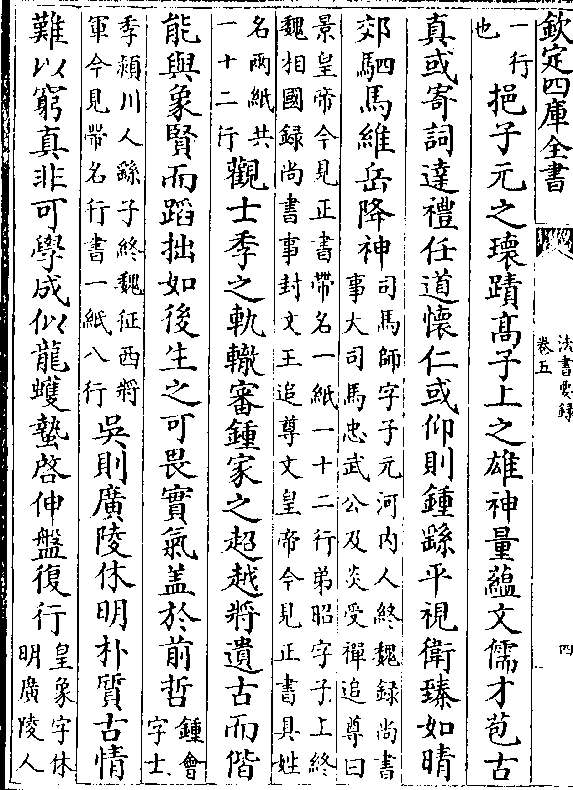 欽定四庫全書
法書要録
卷五
四
一行
也
挹子元之瓌蹟高子上之雄神量藴文儒才苞古
真或寄詞達禮任道懷仁或仰則鍾繇平視衛臻如晴
郊駟馬維岳降神
司馬師字子元河内人終魏録尚書
事大司馬忠武公及炎受禪追尊曰
景皇帝今見正書帶名一紙一十二行弟昭字子上終
魏相國録尚書事封文王追尊文皇帝今見正書具姓
名兩紙共
一十二行
觀士季之軌轍審鍾家之超越將遺古而偕
能與象賢而蹈拙如後生之可畏實氣盖於前哲
鍾會
字士
季頴川人繇子終魏征西將
軍今見帶名行書一紙八行
吳則廣陵休明朴質古情
難以窮真非可學成似龍蠖蟄啓伸盤復行
皇象字休
明廣陵人